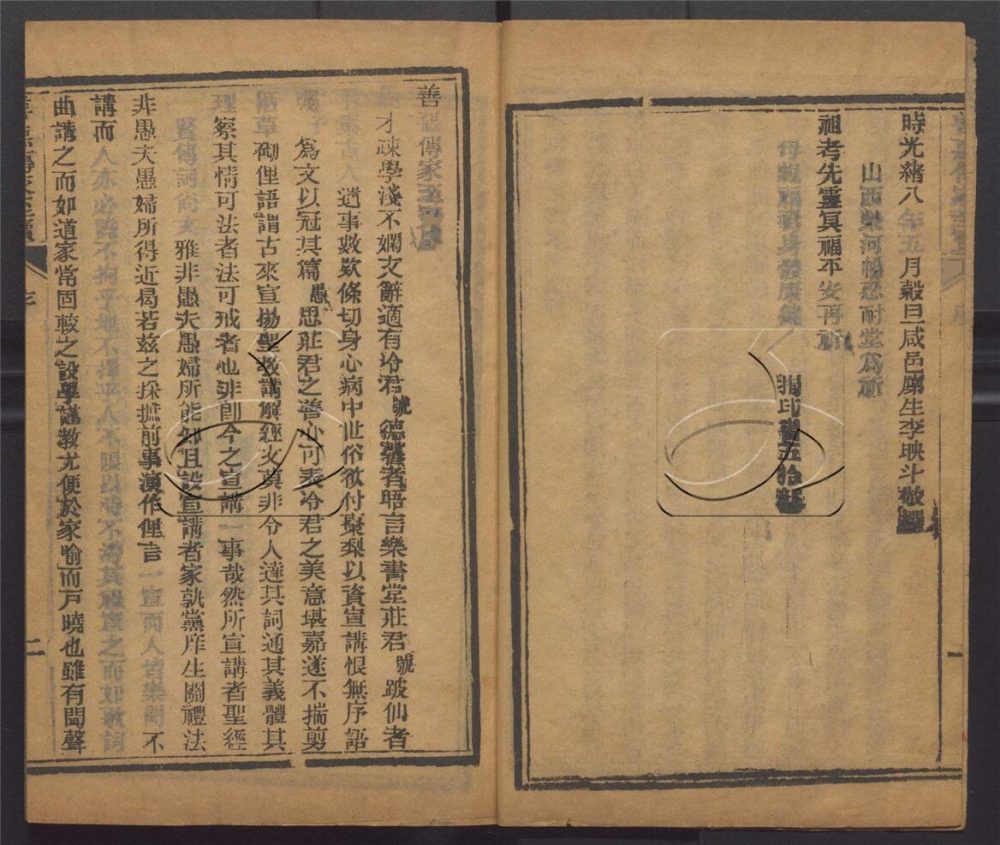 時光緒八年五月穀旦咸邑廩生李映斗敬
山西榮河暢忍耐堂爲祈
祖考先靈冥福平安再祈
母親福壽身體康健
揚印書五拾部
善惡傳家至寶
才疎學淺不嫻文辭適有冷君號德馨者晤言樂書堂莊君號跛仙者
遺事數欵條切身心病中世俗欲付棗梨以資宣講恨無序語
爲文以冠其篇愚思莊君之善心可奏冷君之美意堪嘉遂不揣剪
陋草砌俚語謂古來宣揚聖教講解經文莫非令人達其詞通其義體其
理察其情可法者法可戒者也非卽今之宣講一事哉然所宣講者聖經
賢傳詞尚文雅非愚夫愚婦所能知且設宣講者家孰黨庠生關禮法
非愚夫愚婦所得近曷若茲之採摭前事演作俚言一宣而人皆樂聞不
講而人亦必
曲講之而如道家常固較之設學謹教尤便於家喻而戶曉也雖有聞聲
序
二